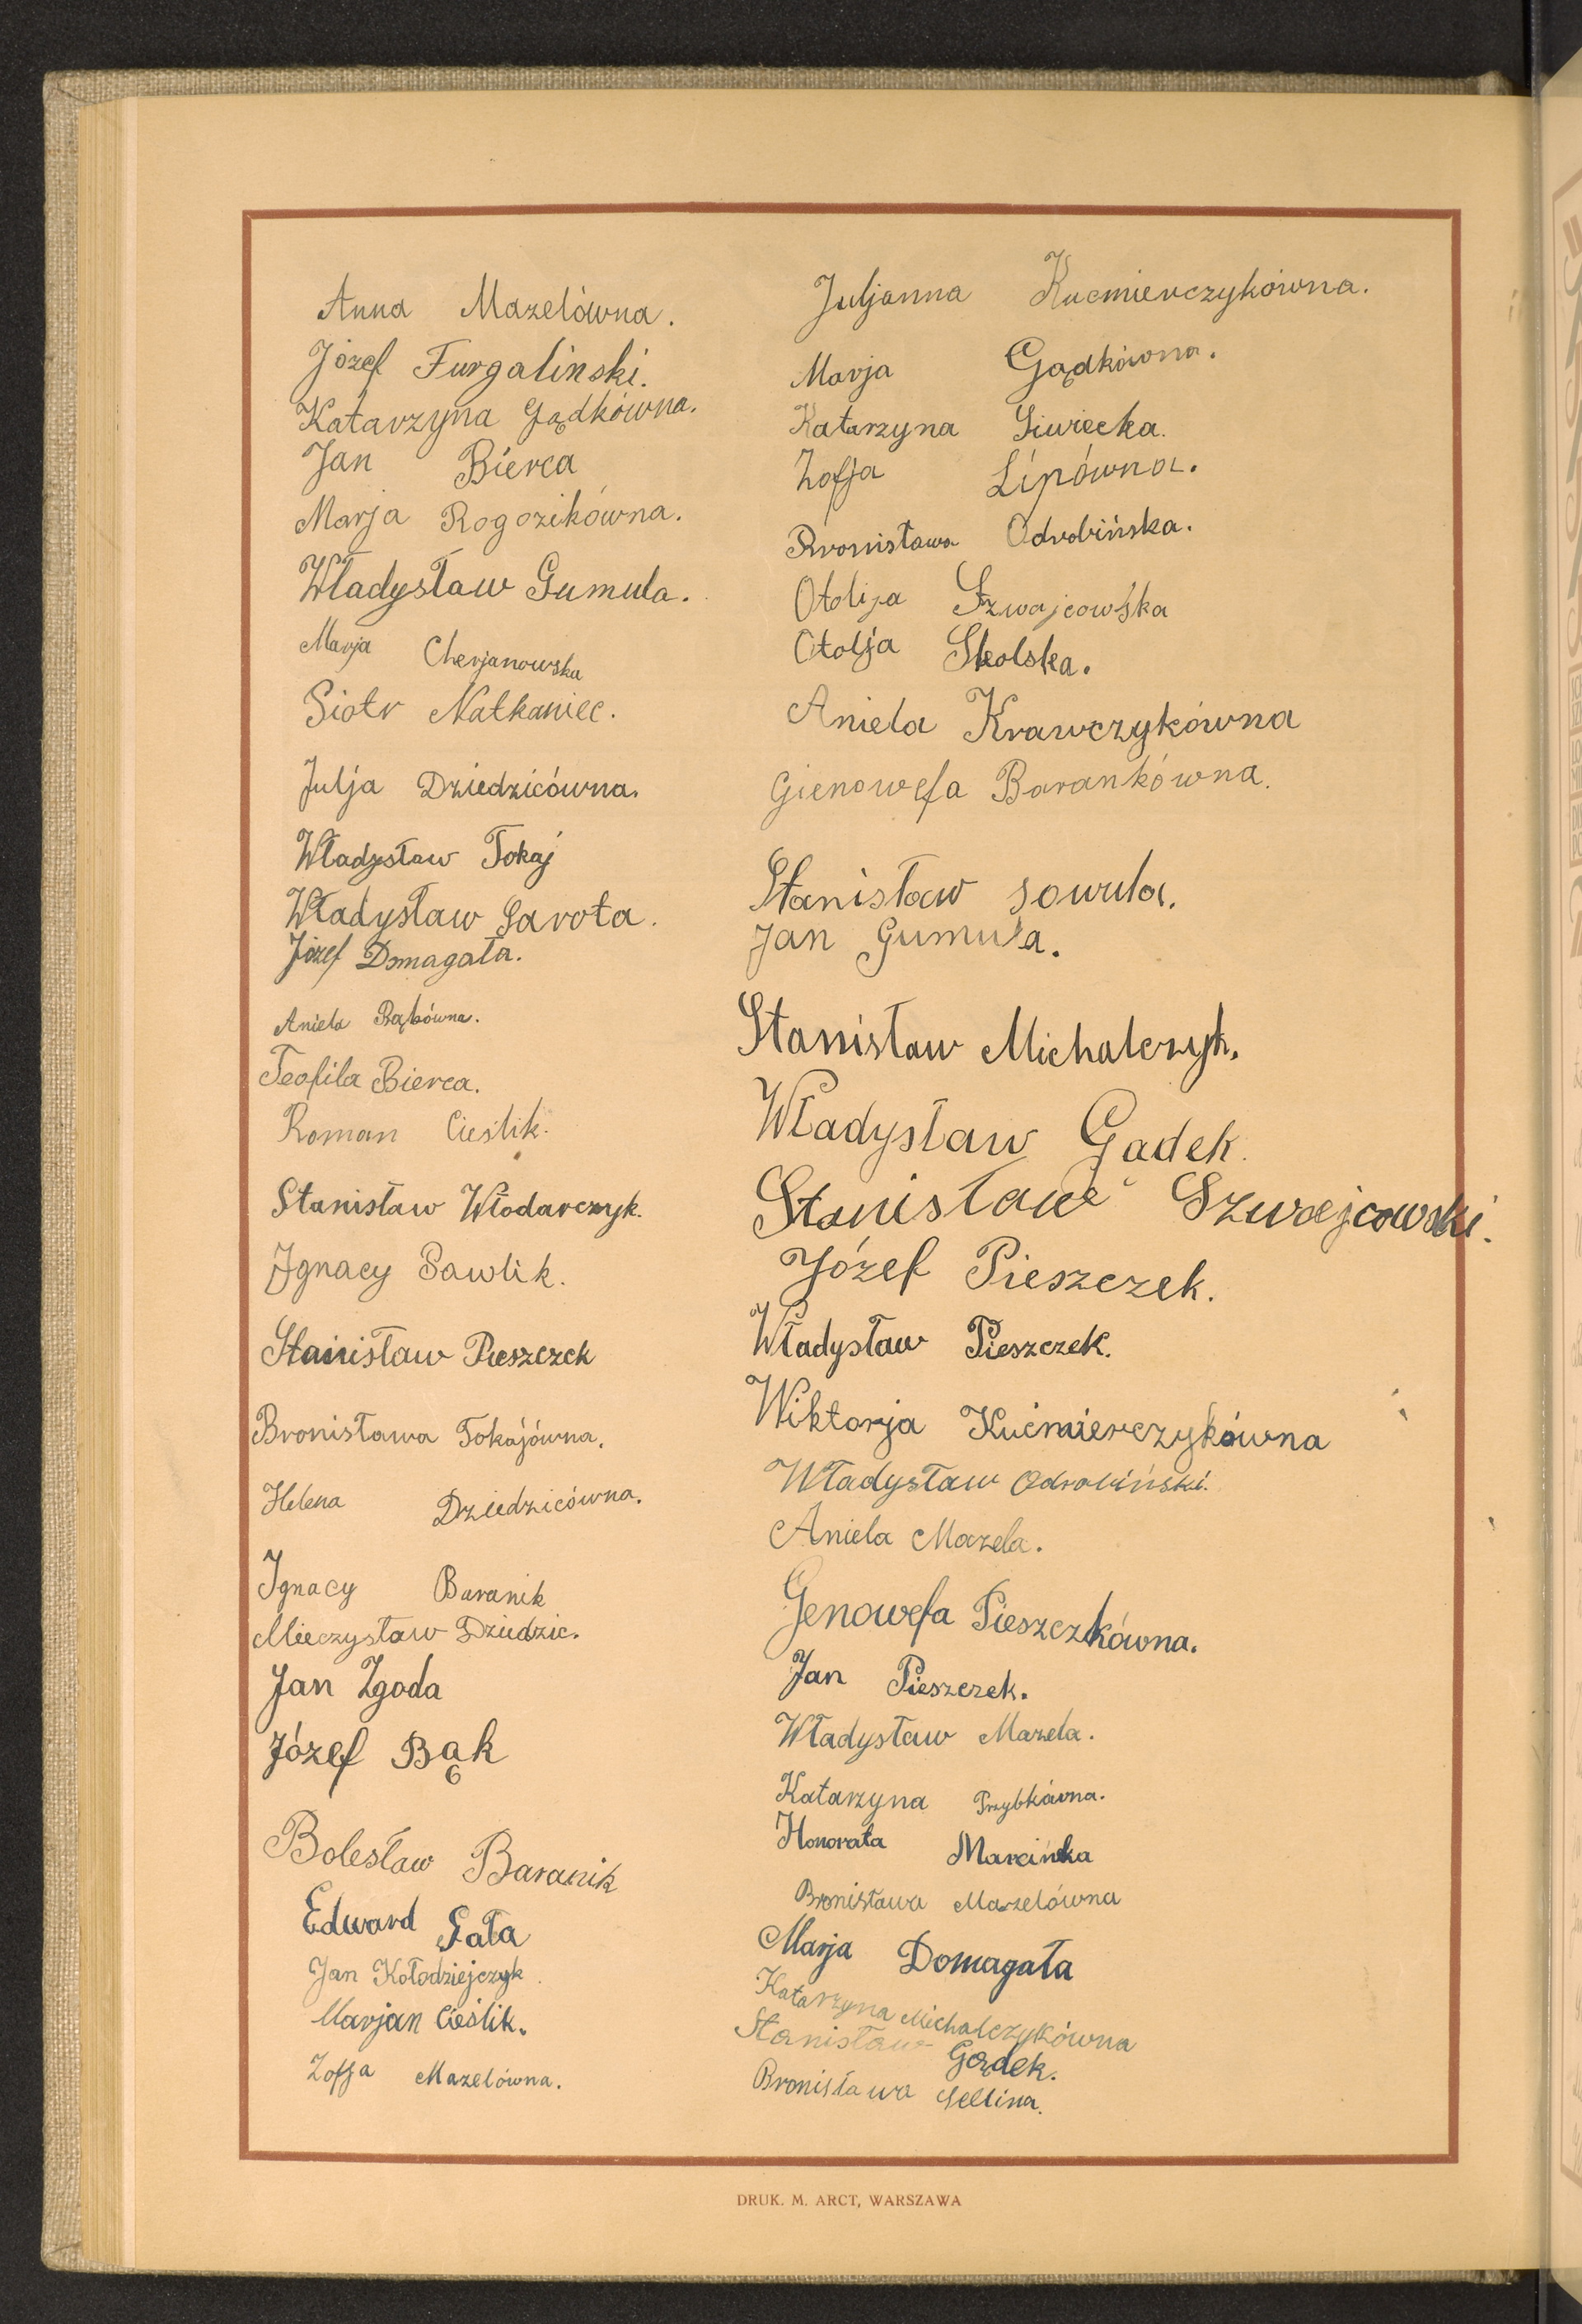 Anna Mazelówna.
Józef Furgalinski.
Katarzyna Gądkówna.
Jan Bierca
Marja Rogozikówna.
Władysław Gumula.
Marja Cherjanowska
Piotr Natkaniec.
Julja Dziedzicówna.
Władysław Tokaj
Władysław Sarota.
Józef Domagała.
Aniela Bąkówna.
Teofila Bierca.
Roman Cieślik.
Stanisław Włodarczyk.
Ignacy Pawlik.
Stanisław Pieszczek
Bronisława Tokajówna.
Helena Dziedzicówna.
Ignacy Baranik
Mieczysław Dziedzic.
Jan Zgoda
Józef Bąk
Bolesław Baranik
Edward Gała
Jan Kołodziejczyk.
Marjan Cieślik.
Zofja Mazelówna.
Juljanna Kucmierczykówna.
Marja Gądkówna.
Katarzyna Siwiecka.
Zofja Lipówna.
Bronisława Odrobińska.
Otolija Szwajcowśka
Otolja Skolska.
Aniela Krawczykówna
Gienowefa Barankówna.
Stanisław Sowula.
Jan Gumula.
Stanisław Michalczyk.
Władysław Gądek.
Stanisław Szwajcowski.
Józef Pieszczek.
Władysław Pieszczek.
Wiktorja Kućmierczykówna
Władysław Odrobiński.
Aniela Mazela.
Genowefa Pieszczkówna.
Jan Pieszczek.
Władysław Mazela.
Katarzyna Przybkówna.
Honorata Marcińka
Bronisława Mazelówna
Marja Domagała
Katarzyna Michalczykówna
Stanisław Gądek.
Bronisława
DRUK. M. ARCT, WARSZAWA